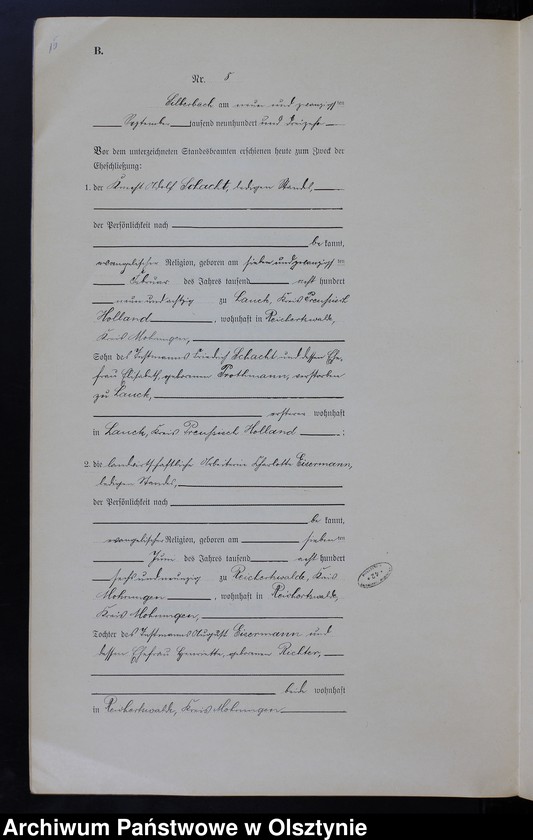 15
B.
Nr. 8
Silberbach am neun und zwanzigsten
September tausend neunhundert und dreizehn
Vor dem unterzeichneten Standesbeamten erschienen heute zum Zweck der
Eheschließung:
1. der Knecht Adolf Schacht, ledigen Standes,
der Persönlichkeit nach
bekannt,
evangelischer Religion, geboren am sieben und zwanzigsten
Februar des Jahres tausend acht hundert
neun und achtzig zu Lauck, Kreis Preußisch
Holland, wohnhaft in Reichertswalde,
Kreis Mohrungen,
Sohn des Instmanns Friedrich Schacht und dessen Ehe-
frau Elisabeth, geborenen Prothmann, verstorben
zu Lauck,
ersterer wohnhaft
in Lauck, Kreis Preußisch Holland ;
2. die landwirtschaftliche Arbeiterin Charlotte Eisermann,
ledigen Standes,
der Persönlichkeit nach
bekannt,
evangelischer Religion, geboren am sieben ten
Juni des Jahres tausend acht hundert
sechs und neunzig zu Reichertswalde, Kreis
Mohrungen, wohnhaft in Reichertswalde,
Kreis Mohrungen,
Tochter des Instmanns August Eisermann und
dessen Ehefrau Henriette, geborenen Richter,
beide wohnhaft
in Reichertswalde, Kreis Mohrungen
Archiwum Państwowe w Olsztynie